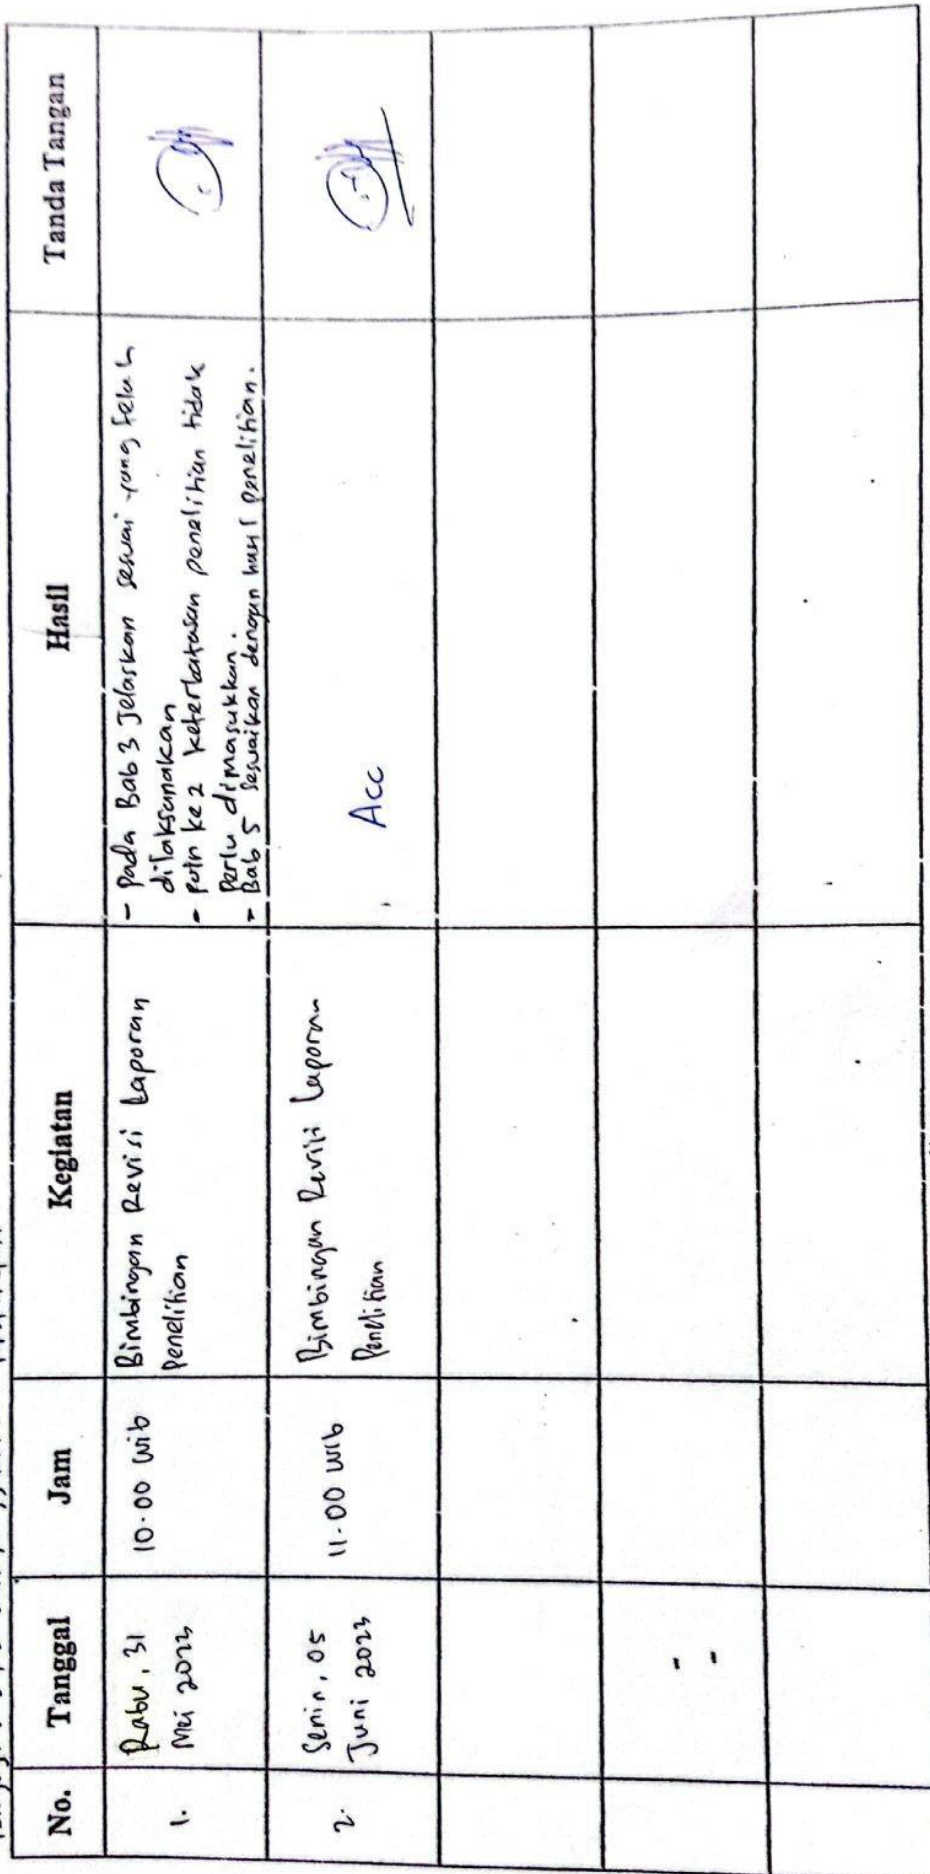 No. Tanggal Jam Kegiatan Hasil Tanda Tangan
1.
Rabu, 31
Mei 2023
10.00 wib
Bimbingan Revisi Laporan
Penelitian
- Pada Bab 3 Jelaskan sesuai yang telah
dilaksanakan
- Poin ke 2 keterbatasan penelitian tidak
Perlu dimasukkan.
- Bab 5 sesuaikan dengan hasil penelitian.
2.
Senin, 05
Juni 2023
11.00 wib
Bimbingan Revisi Laporan
Penelitian
Acc